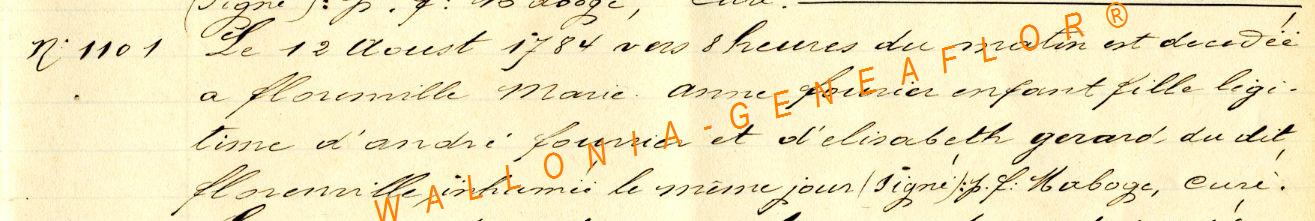 (Signé): p. f. Maboge, curé.
N° 1101 Le 12 Aoust 1784 vers 8 heures du matin est decedée
a florenville Marie Anne fourier enfant fille legi-
time d'andré fourrier et d'elisabeth gerard, du dit
florenville inhumée le même jour (Signé): p. f. Maboge, curé.
WALLONIA-GENEAFLOR®